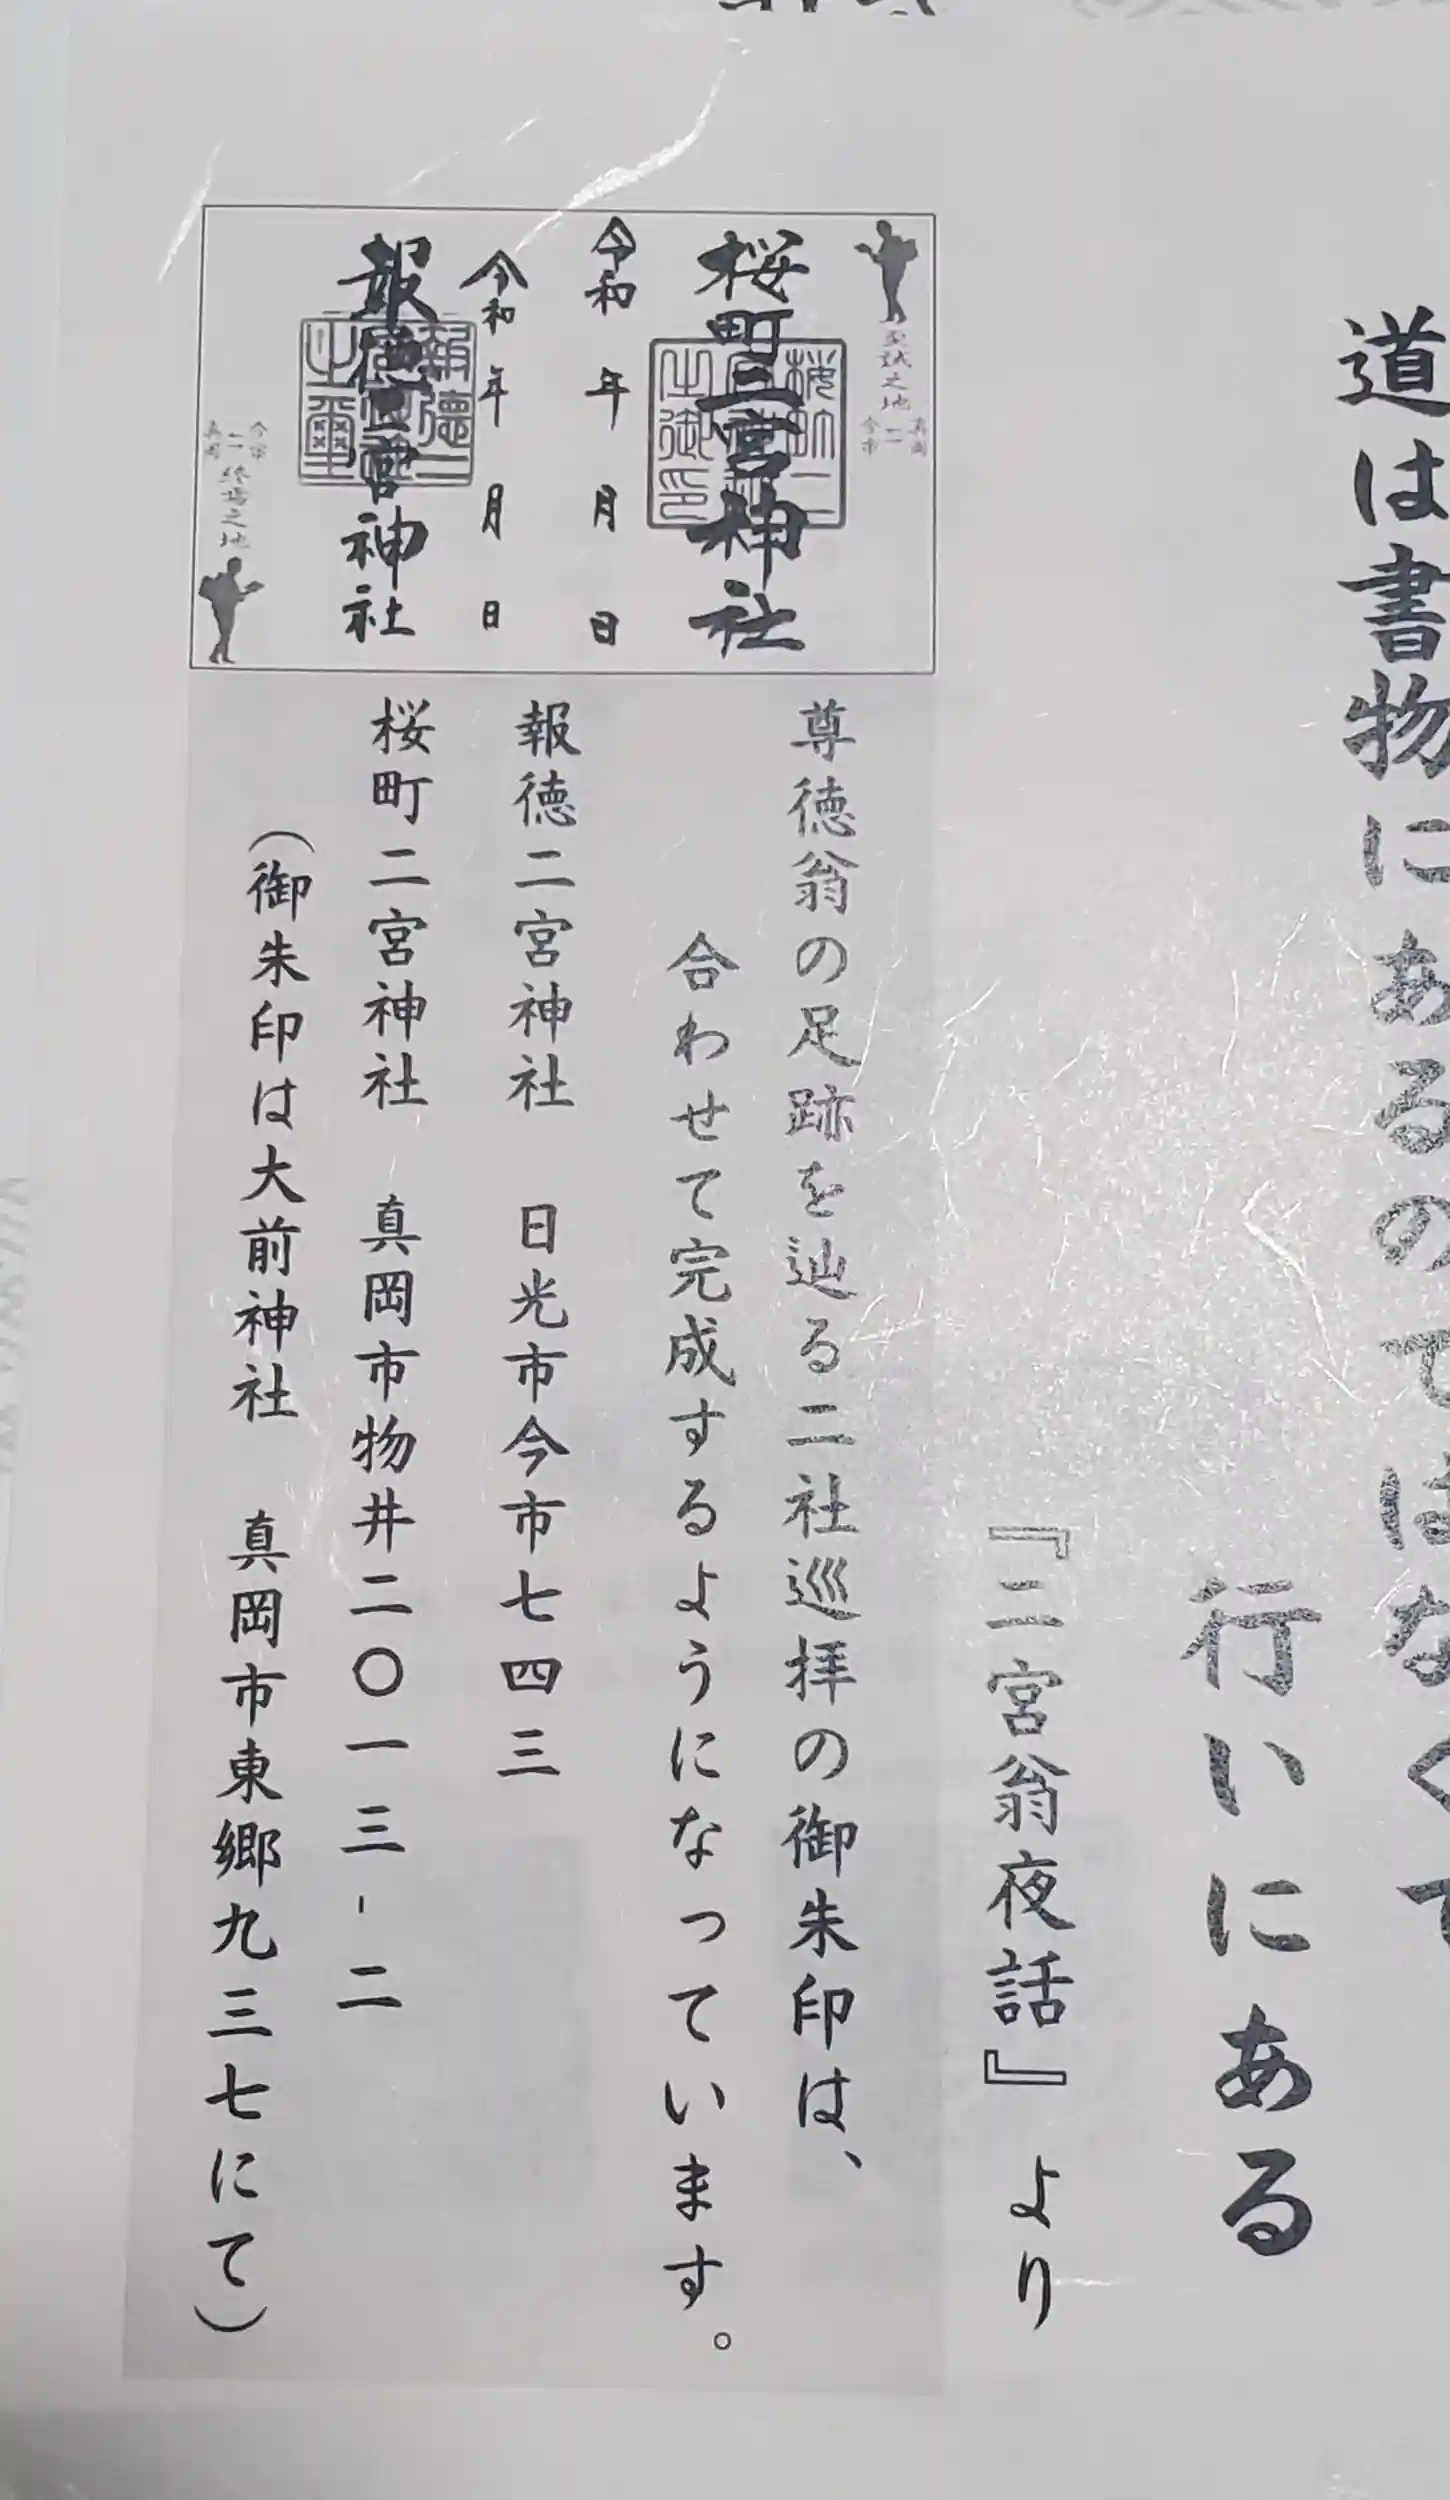 道は書物にあるのではなくて
行いにある
『二宮翁夜話』より
至誠之地
真岡
二
今市
桜町二宮神社
令和 年 月 日
令和 年 月 日
報徳二宮神社
今市
二
真岡
終焉之地
尊徳翁の足跡を辿る二社巡拝の御朱印は、
合わせて完成するようになっています。
報徳二宮神社 日光市今市七四三
桜町二宮神社 真岡市物井二〇一三-二
（御朱印は大前神社 真岡市東郷九三七にて）